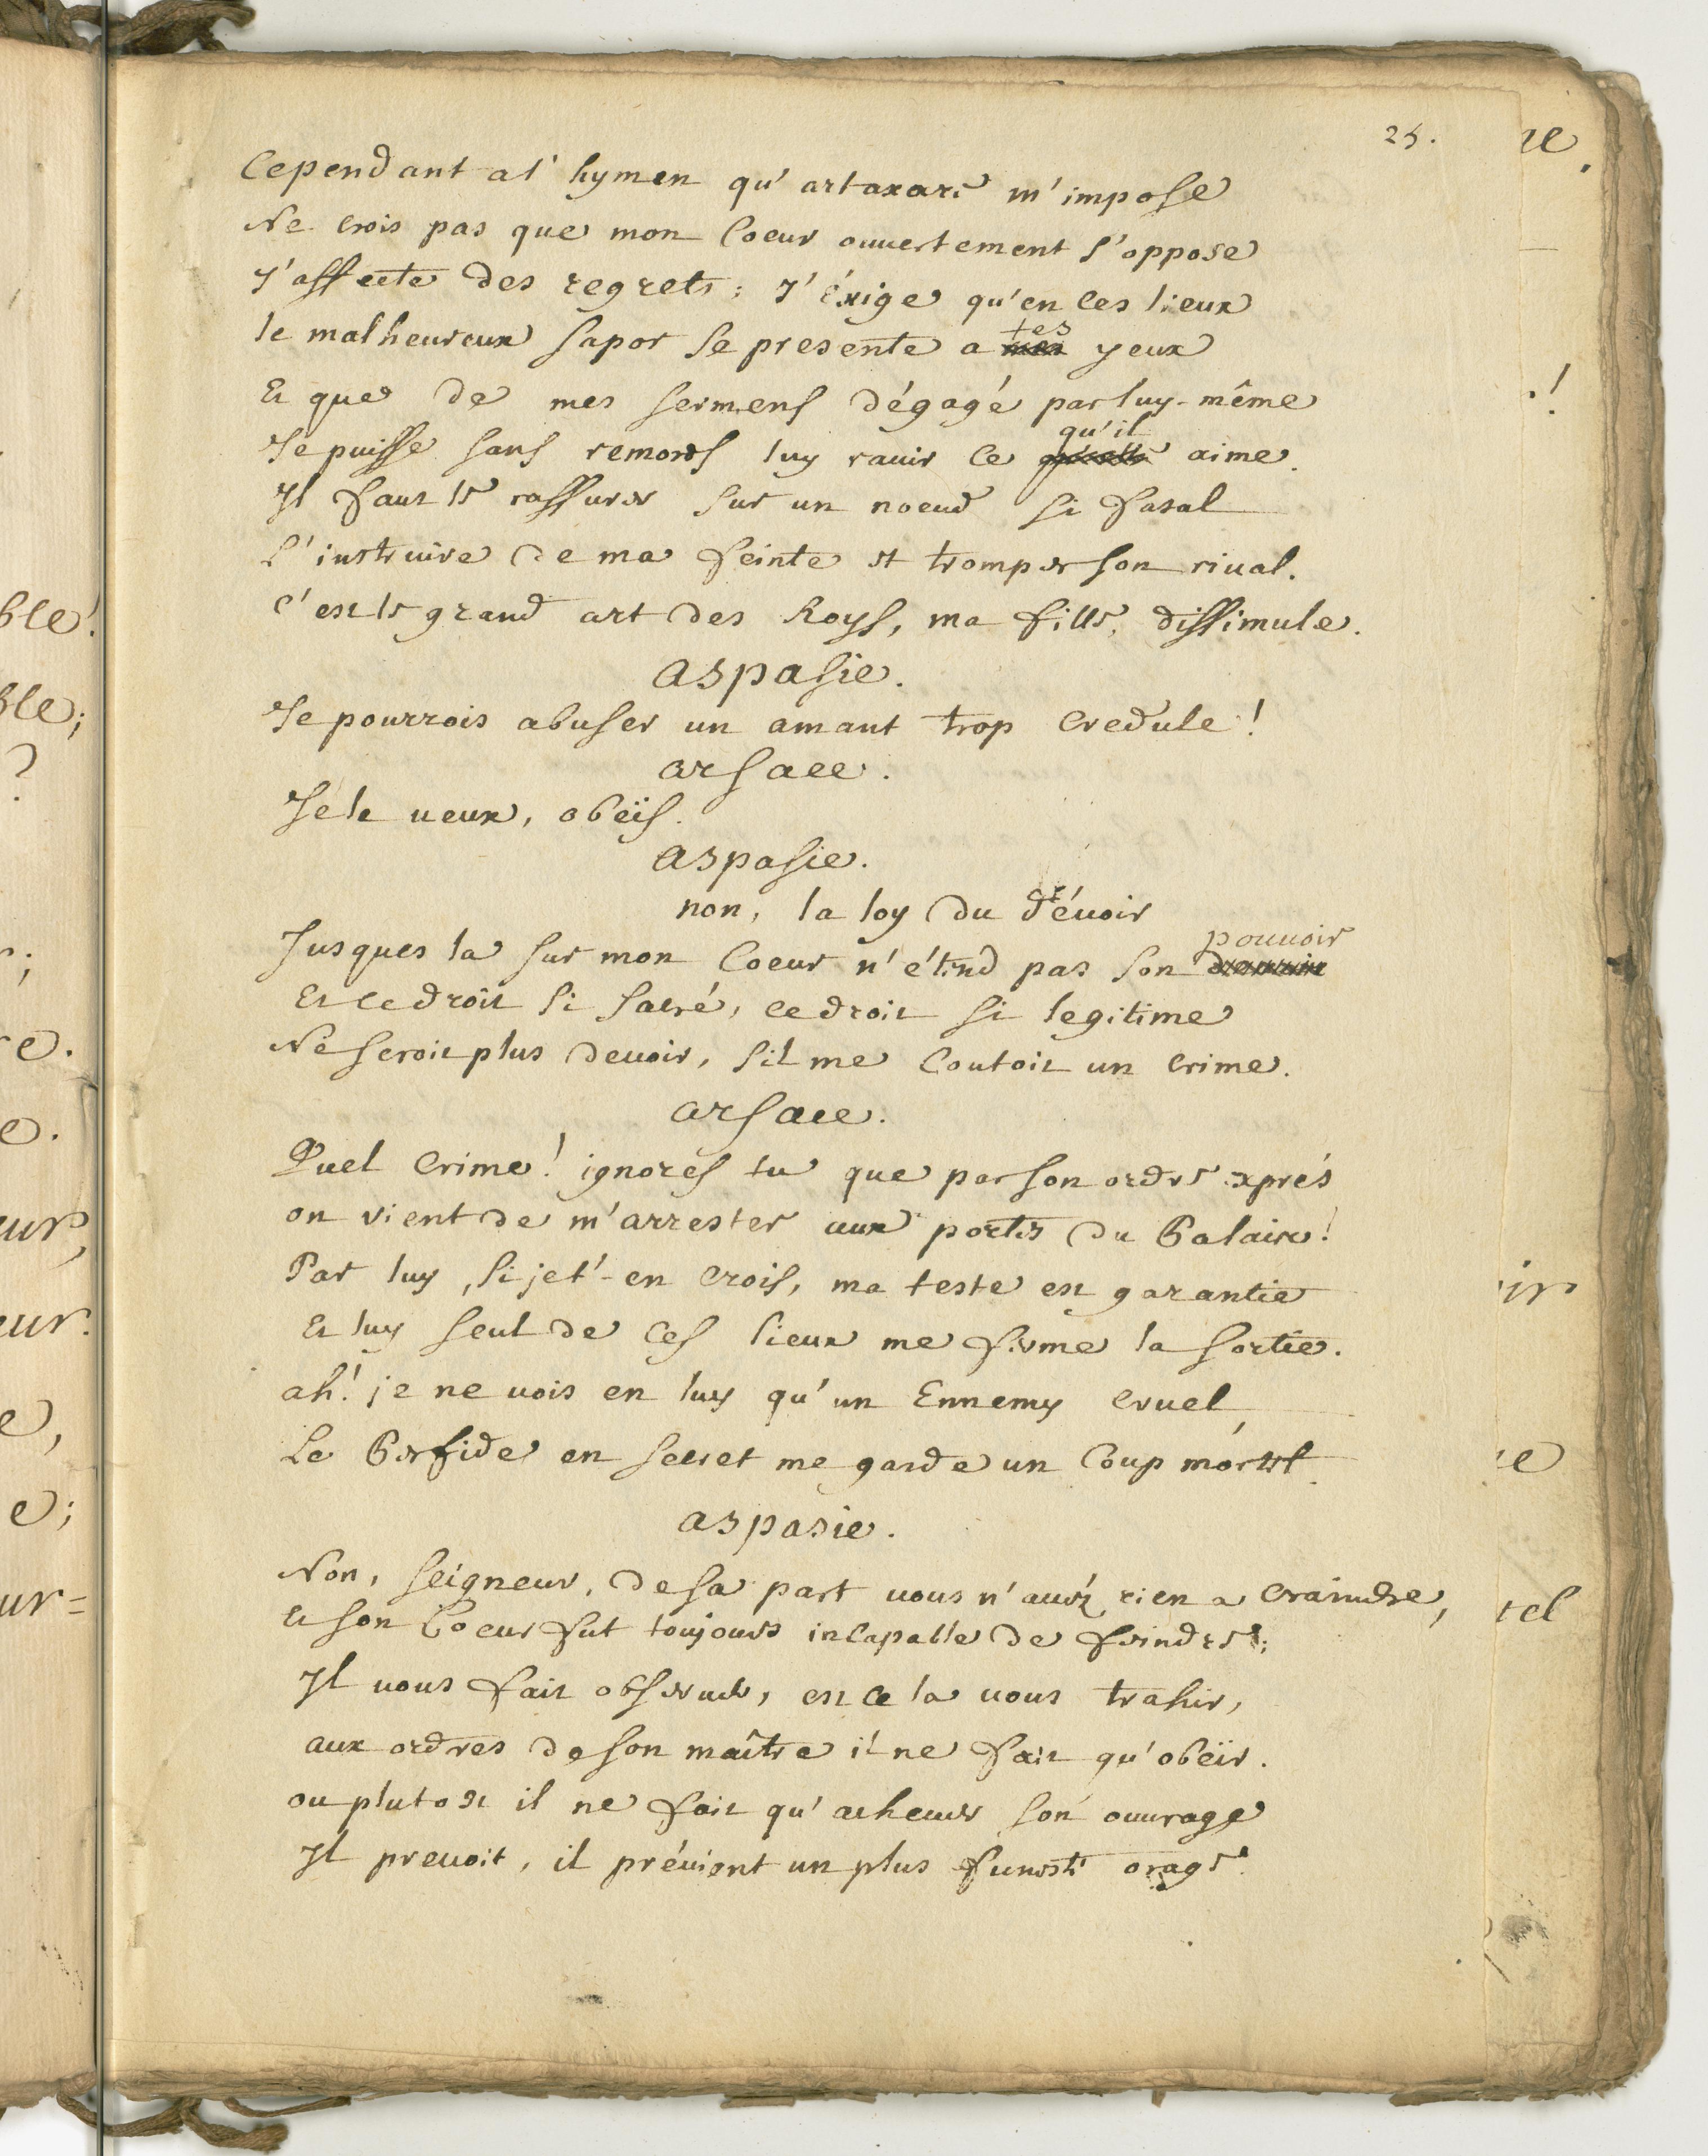 25.
Cependant a l'hymen qu'artaxare m'impose
Ne crois pas que mon Coeur ouuertement s'oppose
J'affecte des regrets; J'éxige qu'en ces lieux
le malheureux sapor se presente a mes tes yeux
Et que de mes sermens dégagé par luy-même
Je puisse sans remords luy rauir ce qu'il aime.
Il faut le rassurer sur un noeud si fatal
L'instruire de ma feinte et tromper son riual.
C'est le grand art des Roys, ma fille, dissimule.
aspasie.
Je pourrois abuser un amant trop credule!
arsace.
Je le ueux, obéïs.
aspasie.
non, la loy du déuoir
Jusques la sur mon Coeur n'étend pas son pouuoir
Et ce droit si sacré, ce droit si legitime
Ne seroit plus deuoir, s'il me Coutoit un crime.
arsace.
Quel crime! ignores tu que par son ordre exprés
on vient de m'arrester aux portes du Palaix!
Par luy, si je t'-en crois, ma teste est garantie
Et luy seul de ces lieux me ferme la sortie.
ah! je ne uois en luy qu'un Ennemy cruel,
Le Perfide en secret me garde un Coup mortel.
aspasie.
Non, seigneur, de sa part uous n'auéz rien a craindre,
Et son Coeur fut toujours incapable de feindre;
Il uous fait obseruer, est ce la uous trahir,
aux ordres de son maître il ne fait qu'obéïr.
ou plutost il ne fait qu'acheuer son ouurage
Il preuoit, il préuient un plus funeste orage.
ble!
ble;
?
r;
re.
e.
eur,
eur.
e,
e;
ur=
re.
.!
ir
re
tel